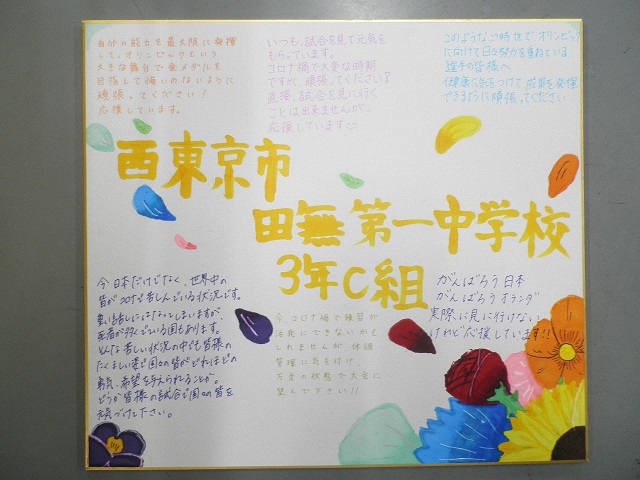 自分の能力を最大限に発揮
して、オリンピックという
大きな舞台で金メダルを
目指して悔いのないように
頑張ってください!
応援しています。
いつも、試合を見て元気を
もらっています。
コロナ禍で大変な時期
ですが、頑張ってください!
直接、試合を見に行く
ことは出来ませんが、
応援しています
このようなご時世で、オリンピック
に向けて日々努力を重ねている
選手の皆様へ
健康に気をつけて、成果を発揮
できるように頑張ってください
西東京市
田無第一中学校
3年C組
今日本だけでなく、世界中の
皆がコロナで苦しんでいる状況です。
重い話しにはなってしまいますが、
死者が多くでいる国もあります。
そんな苦しい状況の中でも皆様の
たくましい姿で国々の皆がどれほどの
勇気、希望を与えられることか。
どうか皆様の試合で国々の皆を
元気づけて下さい。
今、コロナ禍で練習が
活発にできないかも
しれませんが、体調
管理に気を付け、
万全の状態で大会に
望んで下さい!!
がんばろう日本
がんばろうオランダ
実際に見に行けない
けれど応援しています!!